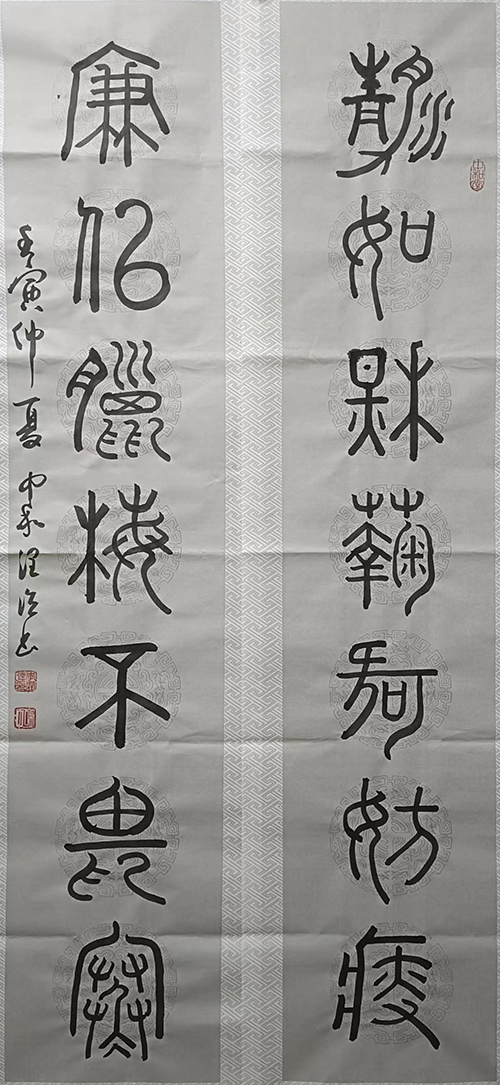 靜如秋菊何妨瘦
廉似臘梅不畏寒
壬寅仲夏